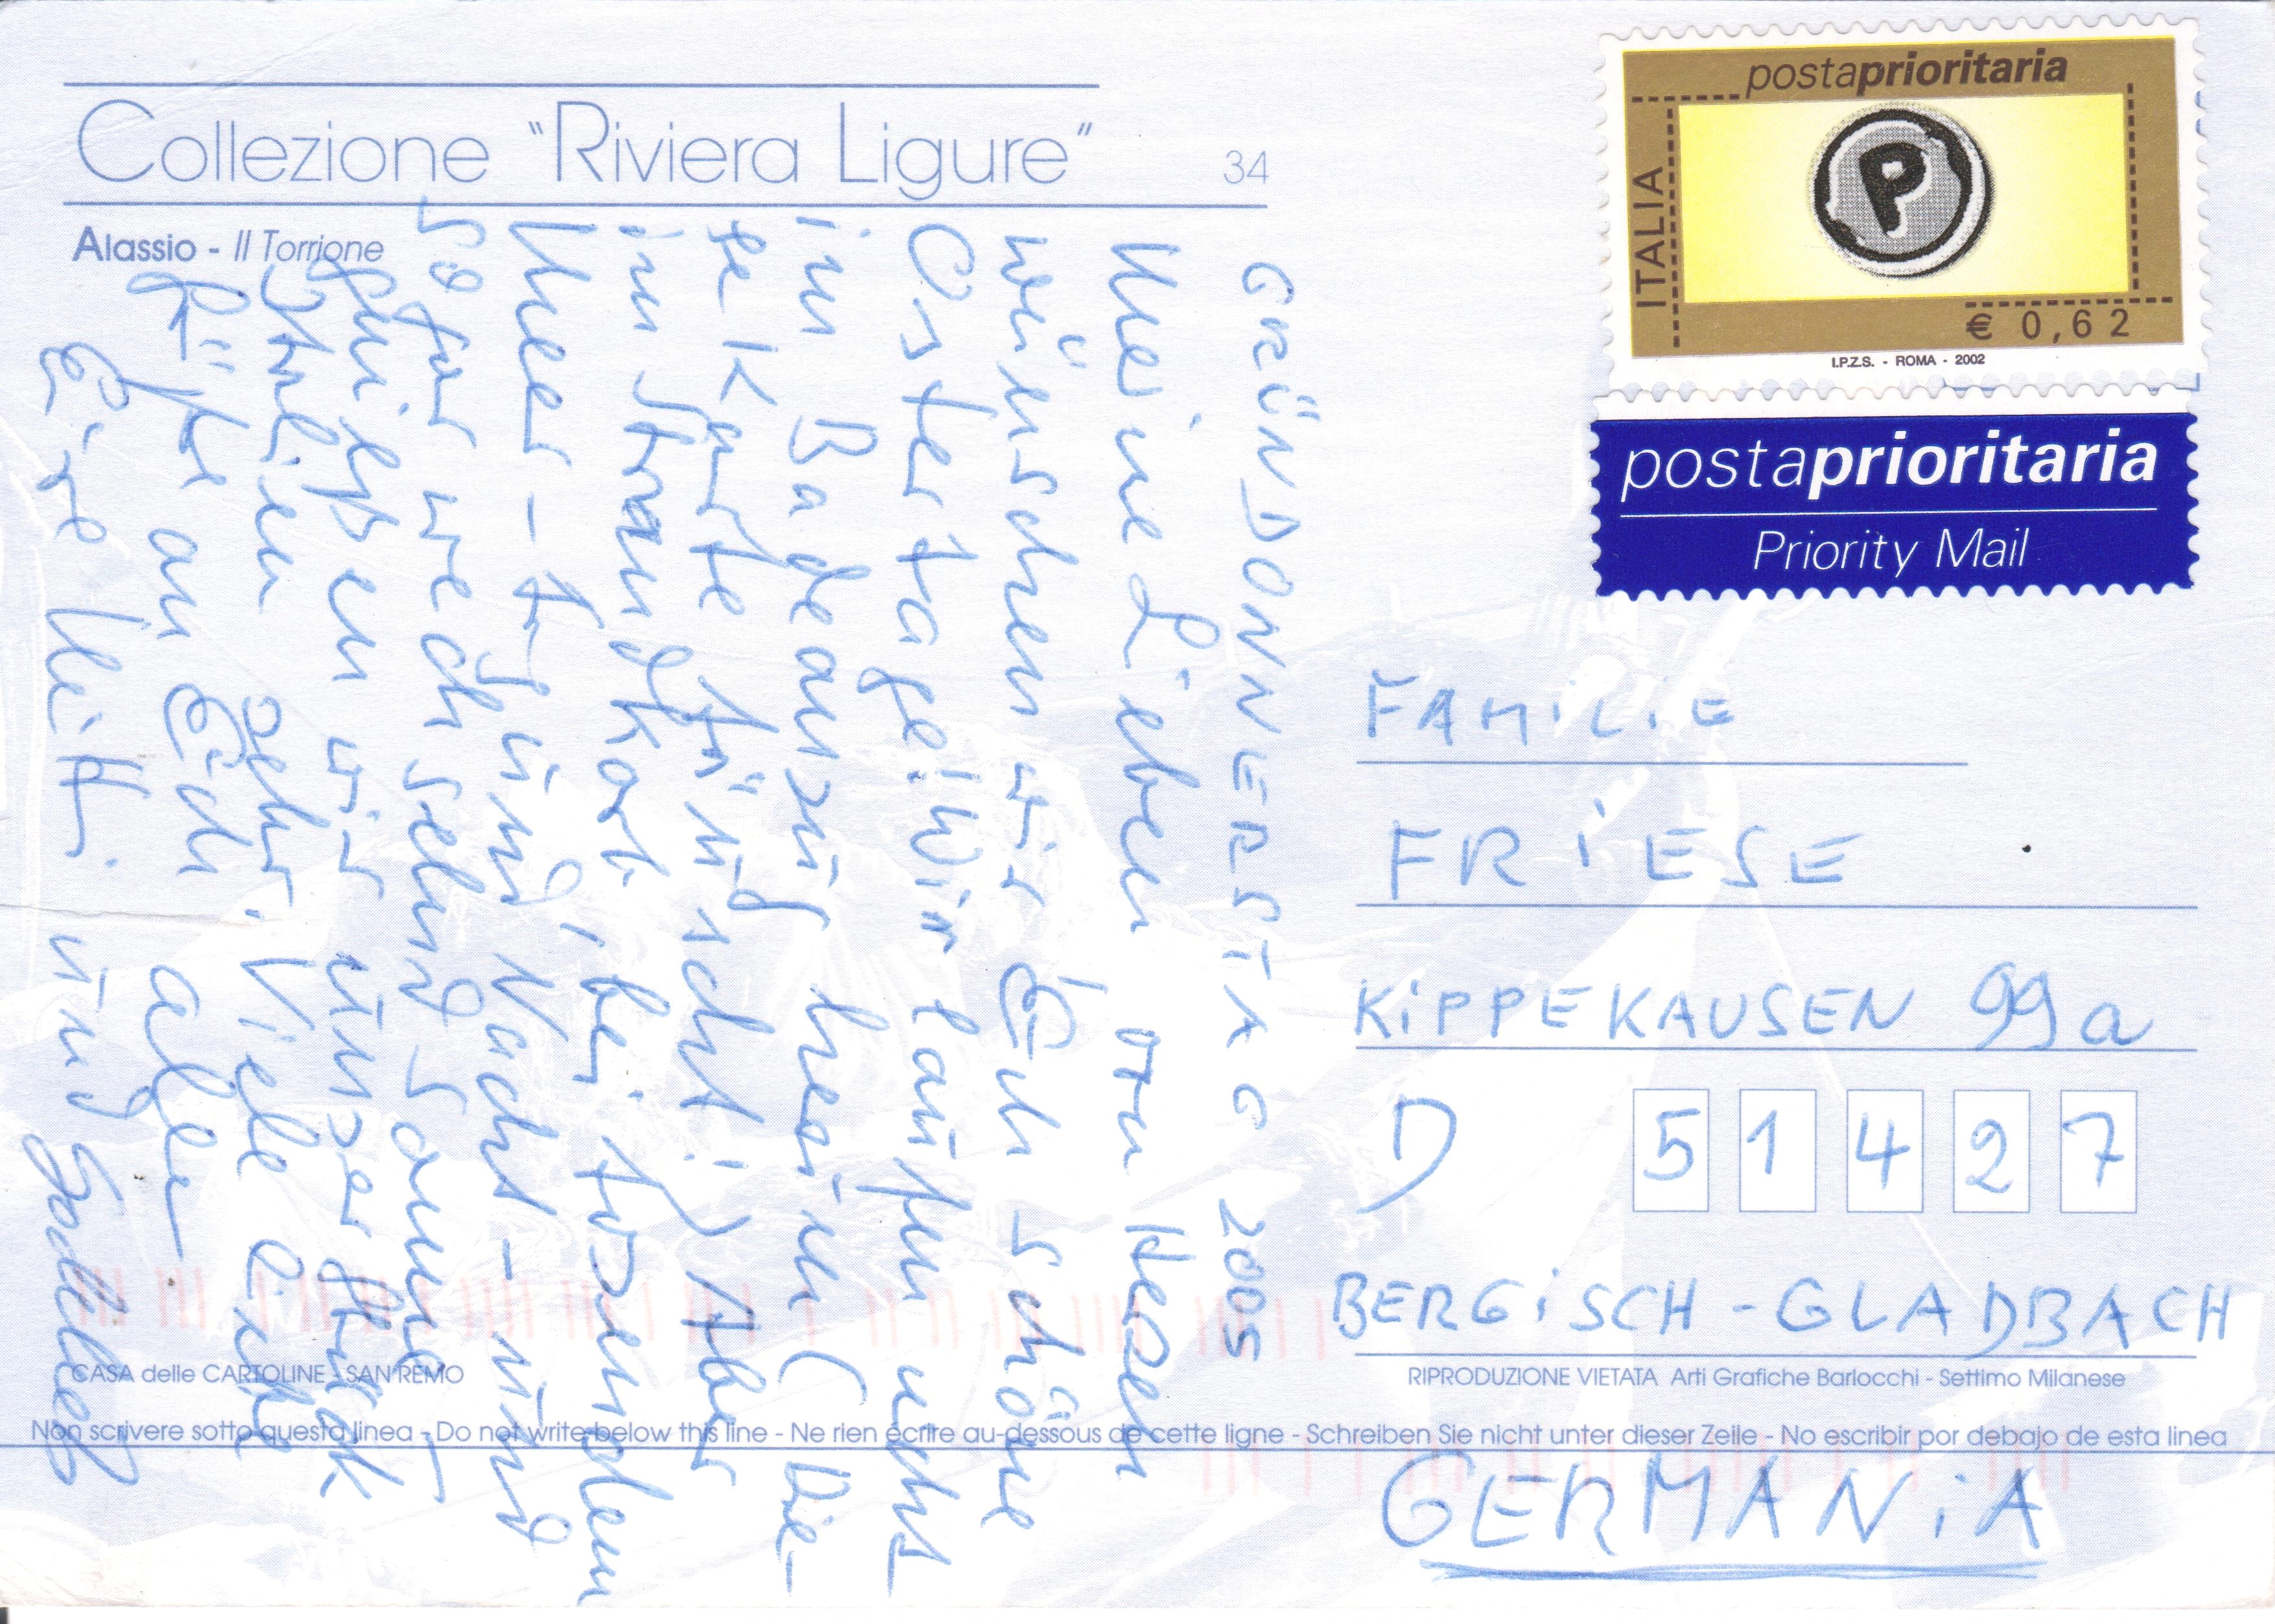 Collezione "Riviera Ligure"
34
Alassio - Il Torrione
GRÜNDONNERSTAG 2005
Meine Lieben von Herzen
wünschen wir Euch schöne
Ostertage! Wir laufen nicht
im Badeanzug herum (Die-
se Karte täuscht!) Aber
im Strandkorb, bei tosendem
Meer - Tag und Nacht - und
genießen wir unser Stück
Italien sehr. Viele liebe
Grüße an Euch alle
Eure und
postaprioritaria
ITALIA
P
€ 0,62
I.P.Z.S. - ROMA - 2002
postaprioritaria
Priority Mail
FAMiLiE
FRiESE
KiPPEKAUSEN 99a
D 51427
BERGiSCH-GLADBACH
GERMANiA
CASA delle CARTOLINE - SAN REMO
RIPRODUZIONE VIETATA Arti Grafiche Barlocchi - Settimo Milanese
Non scrivere sotto questa linea - Do not write below this line - Ne rien écrire au-dessous de cette ligne - Schreiben Sie nicht unter dieser Zeile - No escribir por debajo de esta linea